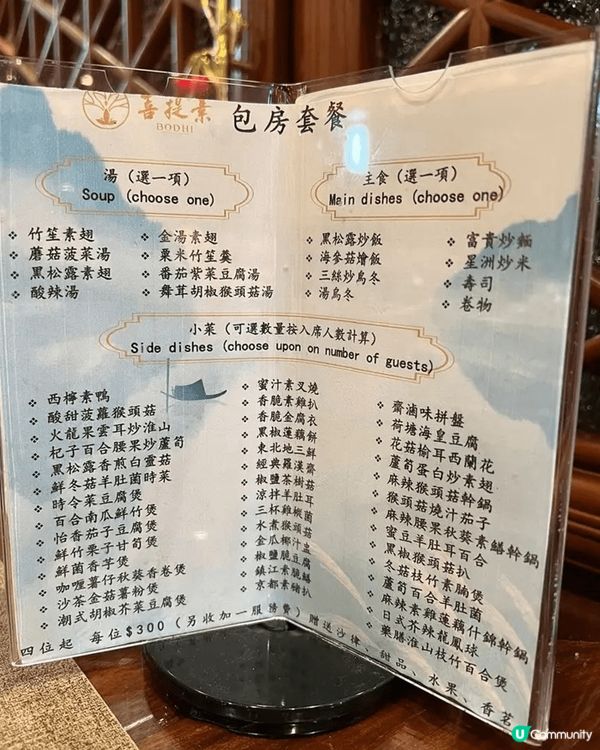 菩提素
BODHI
包房套餐
湯（選一項）
Soup (choose one)
竹笙素翅
蘑菇菠菜湯
黑松露素翅
酸辣湯
金湯素翅
粟米竹笙羹
番茄紫菜豆腐湯
舞茸胡椒猴頭菇湯
主食（選一項）
Main dishes (choose one)
黑松露炒飯
海參菇燴飯
三絲炒烏冬
湯烏冬
富貴炒麵
星洲炒米
壽司
卷物
小菜（可選數量按入席人數計算）
Side dishes (choose upon on number of guests)
西檸素鴨
酸甜菠蘿猴頭菇
火龍果雲耳炒淮山
杞子百合腰果炒蘆筍
黑松露香煎白靈菇
鮮冬菇羊肚菌時菜
時令菜豆腐煲
百合南瓜鮮竹煲
怡香茄子豆腐煲
鮮竹栗子甘筍煲
鮮菌香芋煲
咖喱薯仔秋葵香卷煲
沙茶金菇薯粉煲
潮式胡椒芥菜豆腐煲
蜜汁素叉燒
香脆素雞扒
香脆金腐衣
黑椒蓮藕餅
東北地三鮮
經典羅漢齋
椒鹽茶樹菇
涼拌羊肚耳
三杯雞樅菌
水煮猴頭菇
金瓜椰汁盅
椒鹽脆豆腐
鎮江素脆鱔
京都素豬扒
齋滷味拼盤
荷塘海皇豆腐
花菇榆耳西蘭花
蘆筍蛋白炒素翅
麻辣猴頭菇幹鍋
猴頭菇燒汁茄子
麻辣腰果秋葵素鱔幹鍋
蜜豆羊肚耳百合
黑椒猴頭菇扒
冬菇枝竹素腩煲
蘆筍百合羊肚菌
麻辣素雞蓮藕什錦幹鍋
日式芥辣龍鳳球
藥膳淮山枝竹百合煲
四位起 每位$300（另收加一服務費）贈送沙律、甜品、水果、香茗
U Community